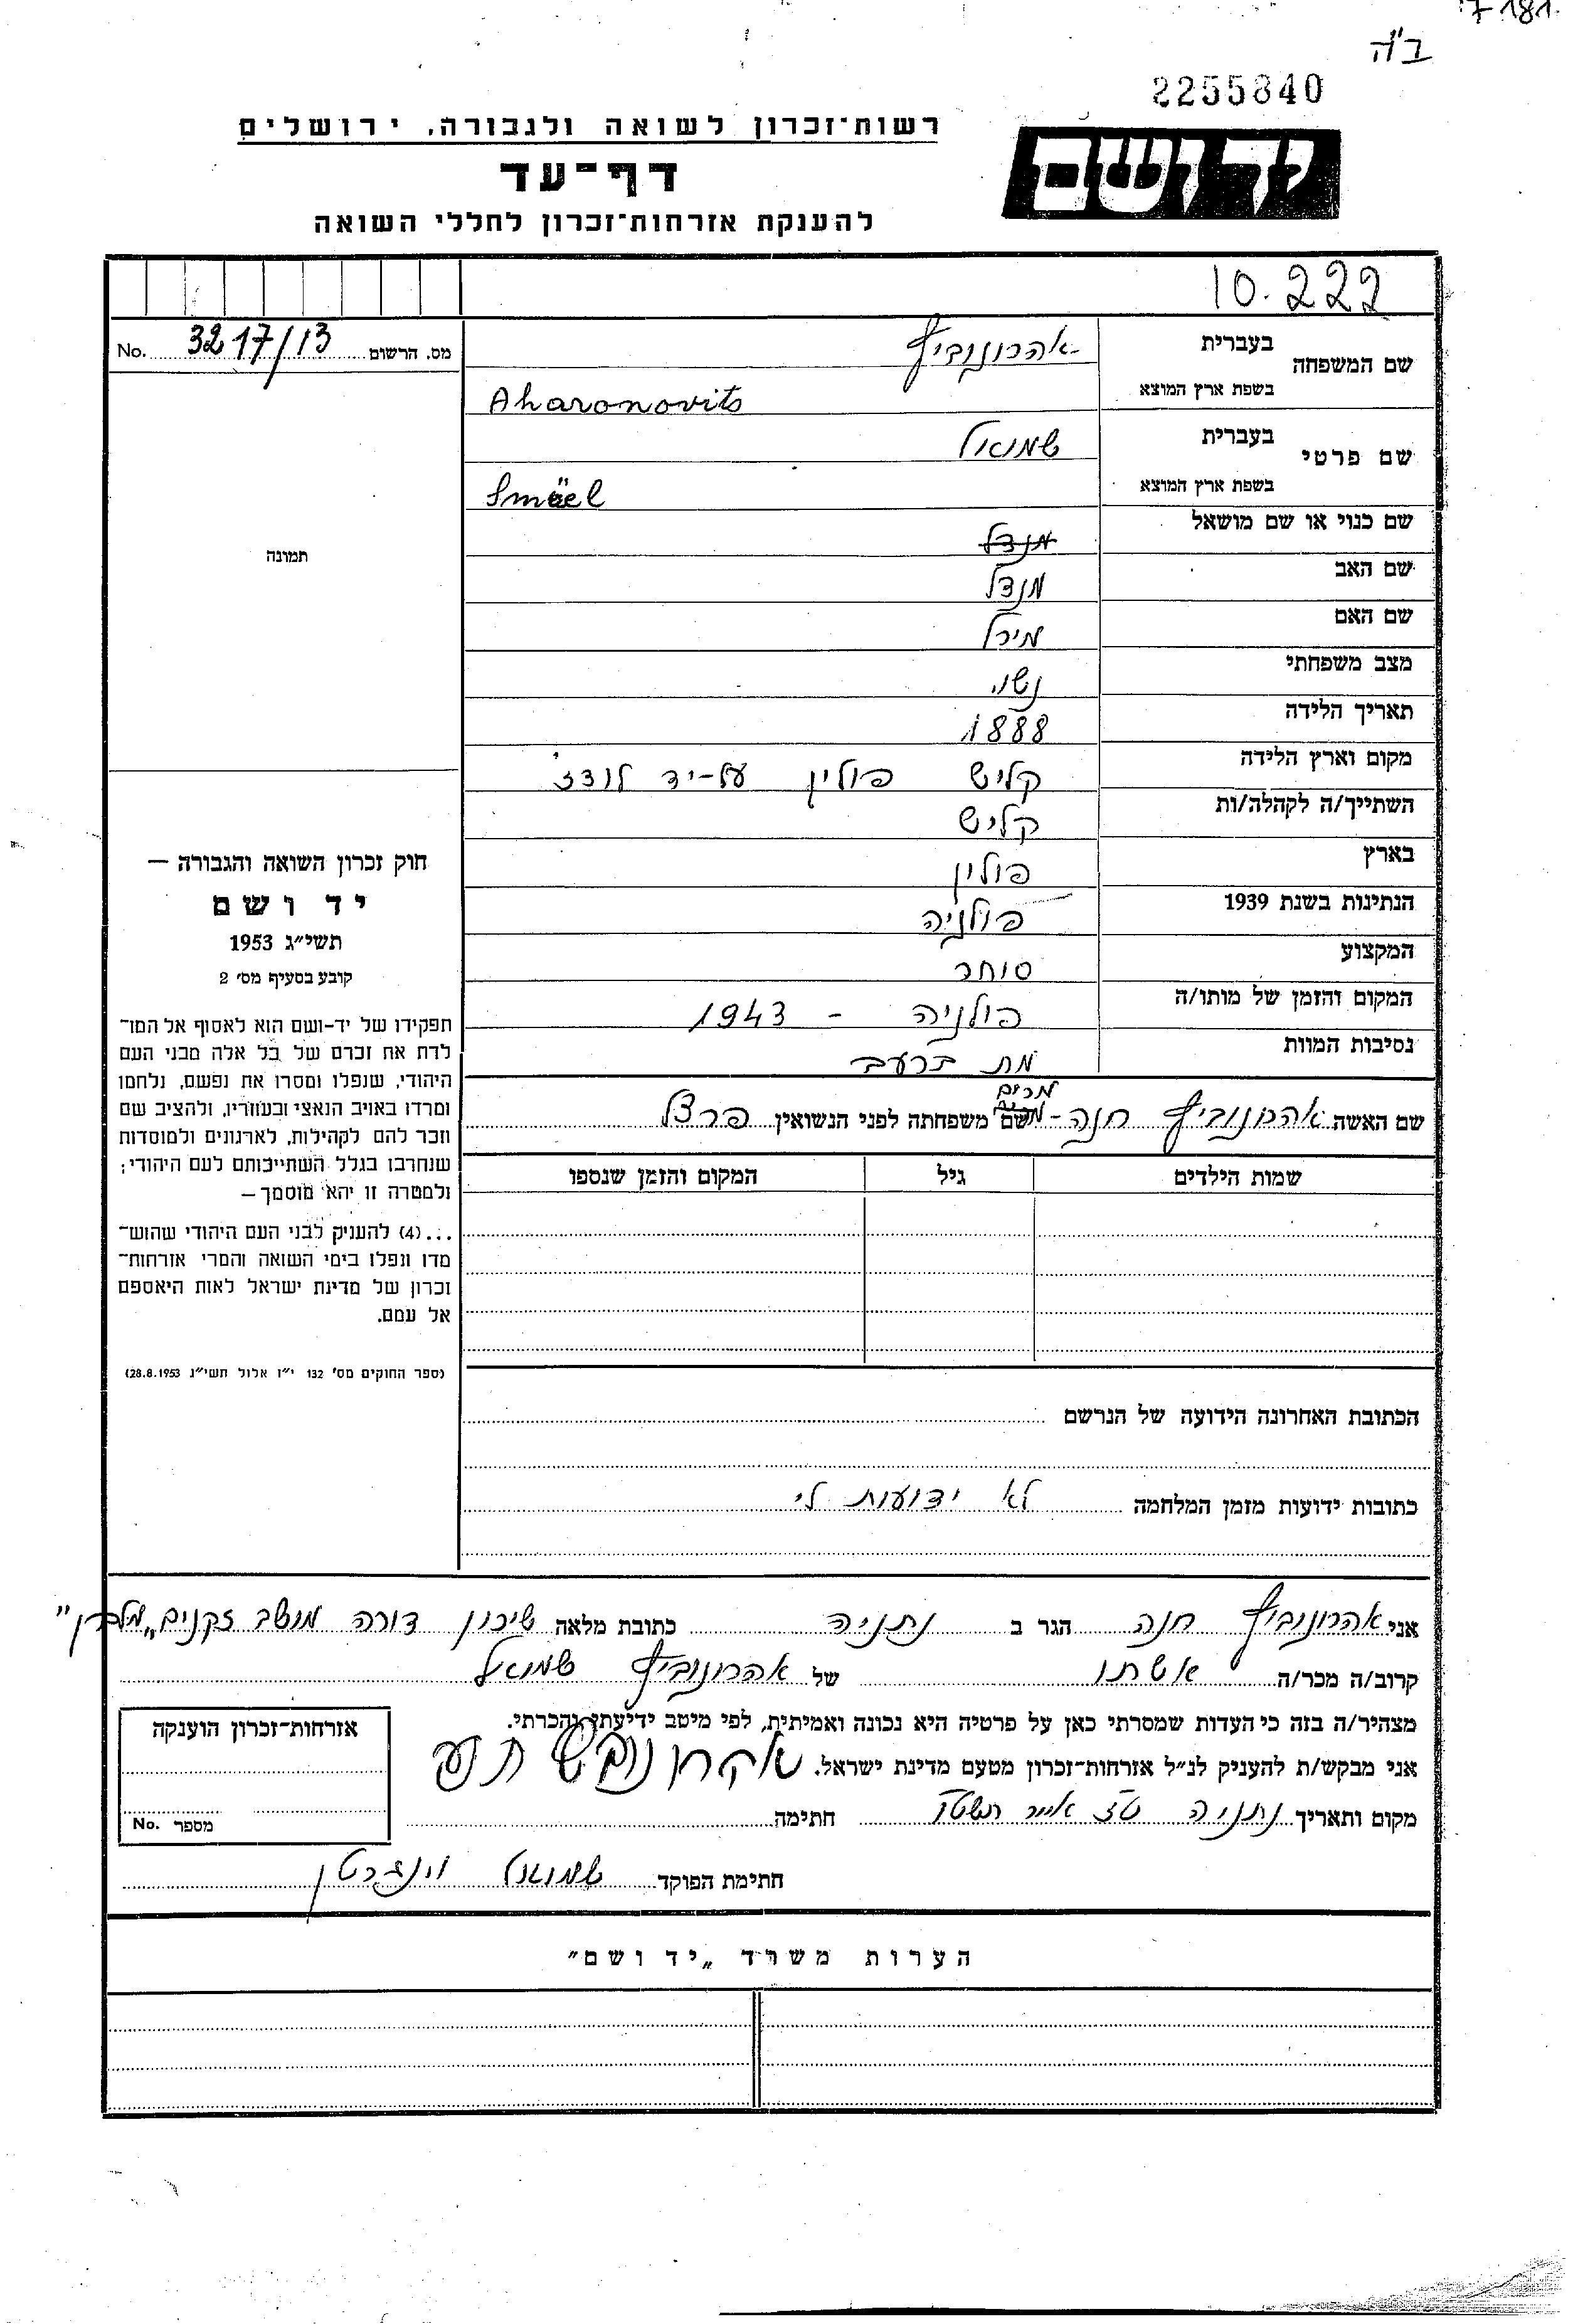 7 181
ב"ה
2255840
רשות־זכרון לשואה ולגבורה, ירושלים
ידושם
דף־עד
להענקת אזרחות־זכרון לחללי השואה
10.222
מס. הרשום 3217/13 No.
שם המשפחה
בעברית אהרונוביץ
בשפת ארץ המוצא Aharonovits
שם פרטי
בעברית שמואל
בשפת ארץ המוצא Smäel
שם כנוי או שם מושאל מנדל
שם האב מנדל
שם האם מירל
מצב משפחתי נשוי
תאריך הלידה 1888
מקום וארץ הלידה קליש פולין על-יד לודז'
השתייך/ה לקהלה/ות קליש
בארץ פולין
הנתינות בשנת 1939 פולניה
המקצוע סוחר
המקום והזמן של מותו/ה פולניה - 1943
נסיבות המוות מת ברעב
מרים
שם האשה אהרונוביץ חנה- שם משפחתה לפני הנשואין פרצל
שמות הילדים גיל המקום והזמן שנספו
הכתובת האחרונה הידועה של הנרשם
כתובות ידועות מזמן המלחמה לא ידועות לי
תמונה
חוק זכרון השואה והגבורה —
יד ושם
תשי״ג 1953
קובע בסעיף מס׳ 2
תפקידו של יד-ושם הוא לאסוף אל המו־
לדת את זכרם של כל אלה מבני העם
היהודי, שנפלו ומסרו את נפשם, נלחמו
ומרדו באויב הנאצי ובעוזריו, ולהציב שם
וזכר להם לקהילות, לארגונים ולמוסדות
שנחרבו בגלל השתייכותם לעם היהודי;
ולמטרה זו יהא מוסמך —
...(4) להעניק לבני העם היהודי שהוש־
מדו ונפלו בימי השואה והמרי אזרחות־
זכרון של מדינת ישראל לאות היאספם
אל עמם.
(ספר החוקים מס׳ 132 י״ז אלול תשי״ג 28.8.1953)
אני אהרונוביץ חנה הגר ב נתניה כתובת מלאה שיכון דורה מושב זקנים „מלבן"
קרוב/ה מכר/ה אשתו של אהרונוביץ שמואל
מצהיר/ה בזה כי העדות שמסרתי כאן על פרטיה היא נכונה ואמיתית, לפי מיטב ידיעתי והכרתי.
אני מבקש/ת להעניק לנ״ל אזרחות־זכרון מטעם מדינת ישראל.
מקום ותאריך נתניה טז אייר תשטז חתימה
חתימת הפוקד שמואל וינגרטן
אזרחות־זכרון הוענקה
מספר No.
הערות משרד „יד ושם"